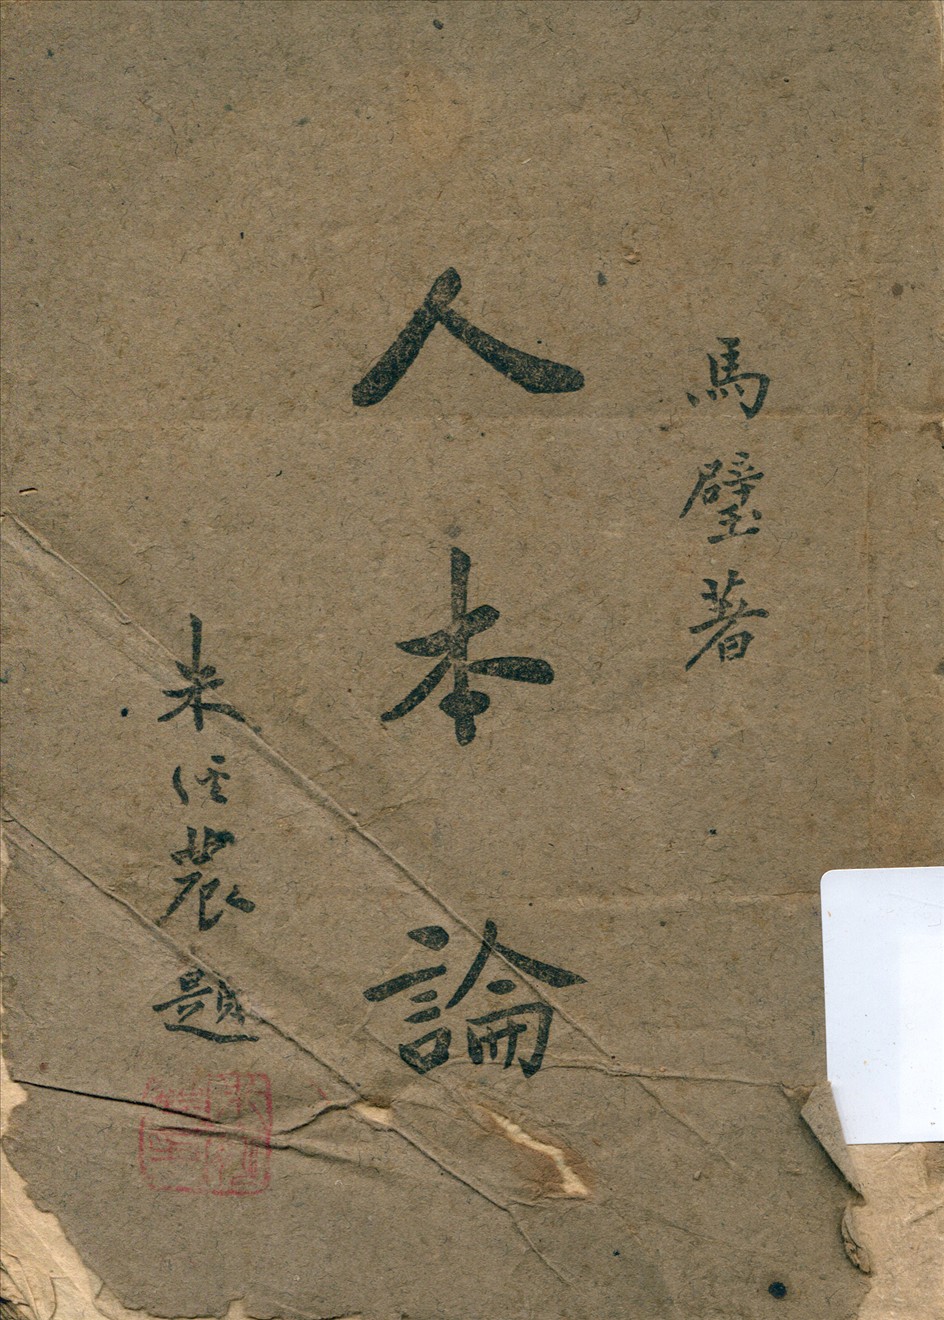 馬璧著
人本論
朱經農題